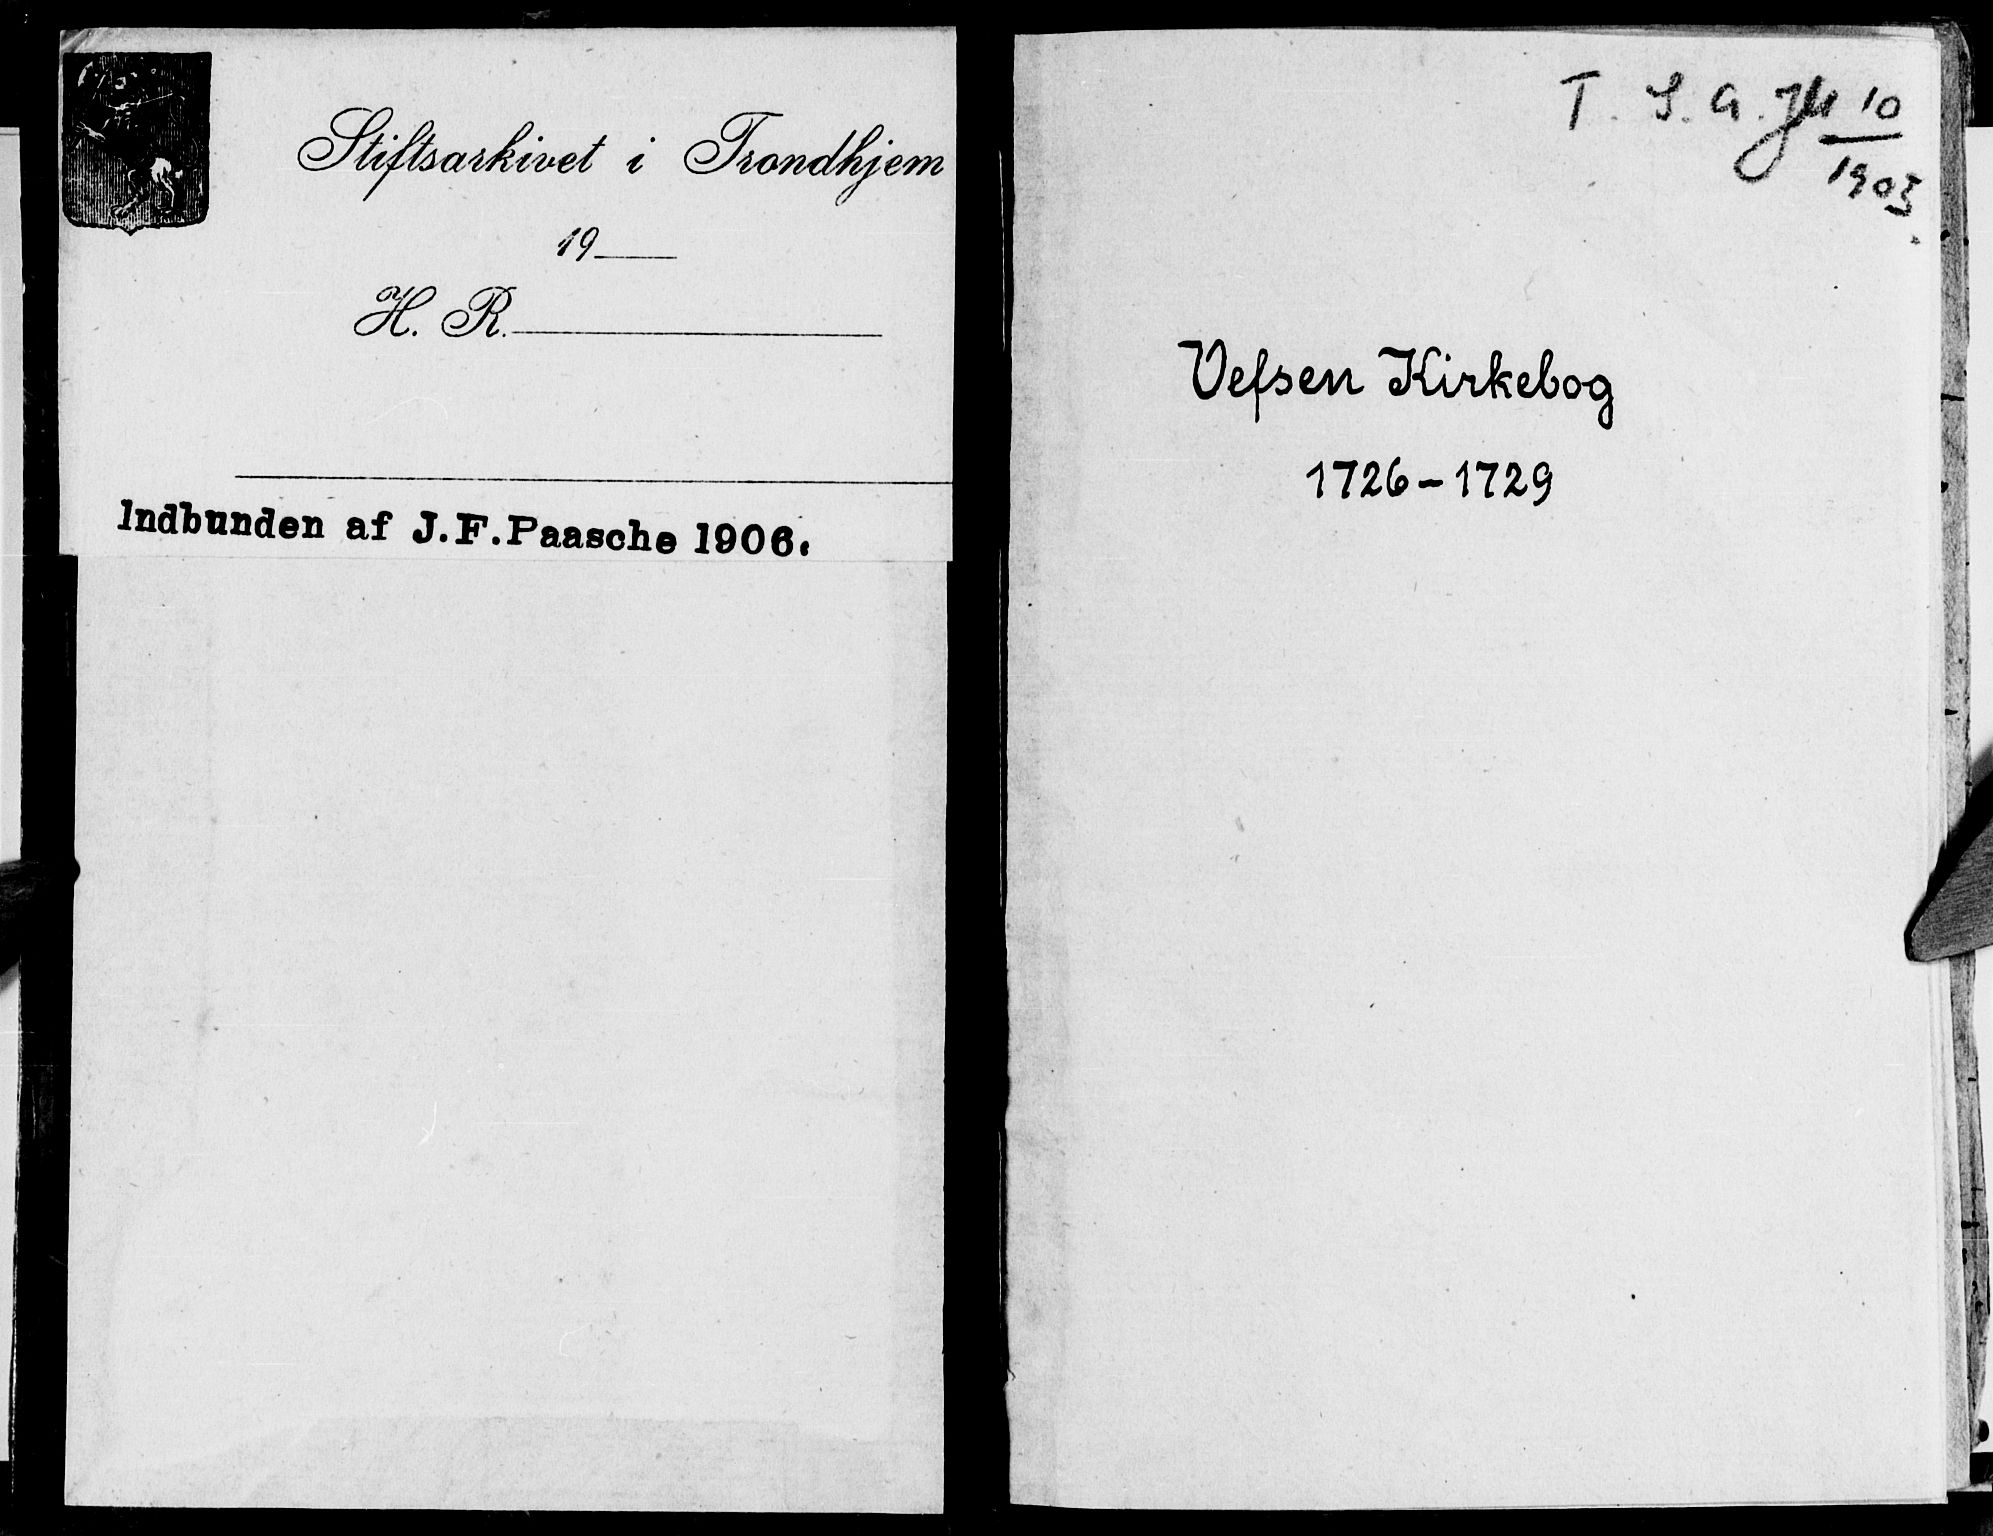 Stiftsarkivet i Trondhjem
19
H. R.
Indbunden af J.F.Paasche 1906.
T. S. A. 10
1903
Vefsen Kirkebog
1726-1729